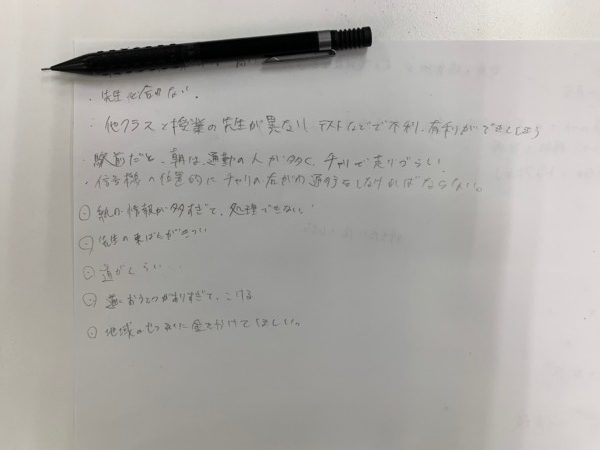 ・先生と合わない。
・他クラスと授業の先生が異なり、テストなどで不利、有利がでてしまう
・駅前だと、朝は、通勤の人が多く、チャリで走りづらい
・信号機の位置的にチャリの右がわ通行をしなければならない。
⊙ 紙の情報が多すぎて、処理できない
⊙ 先生の
⊙ 道がくらい…
⊙ 道におうとつがありすぎて、こける
⊙ 地域の に金をかけてほしい。